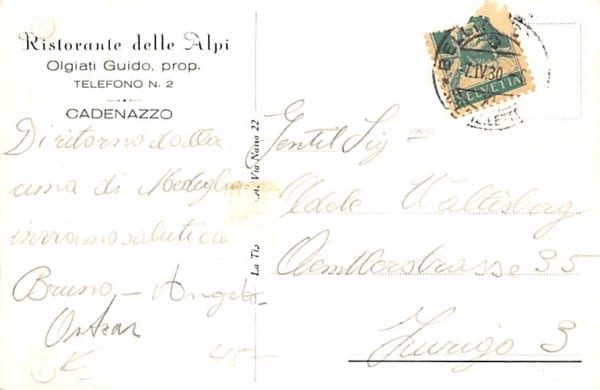 Ristorante delle Alpi
Olgiati Guido, prop.
TELEFONO N. 2
CADENAZZO
Di ritorno dalla
cima di Medeglia
inviamo saluti ca
Bruno - Angelo
Oskar
La Via Nassa 22
BELLINZ
1.IV.30
HELVETIA
Gentil Sig na
Adele Waltisberg
strasse 35
Zurigo 3